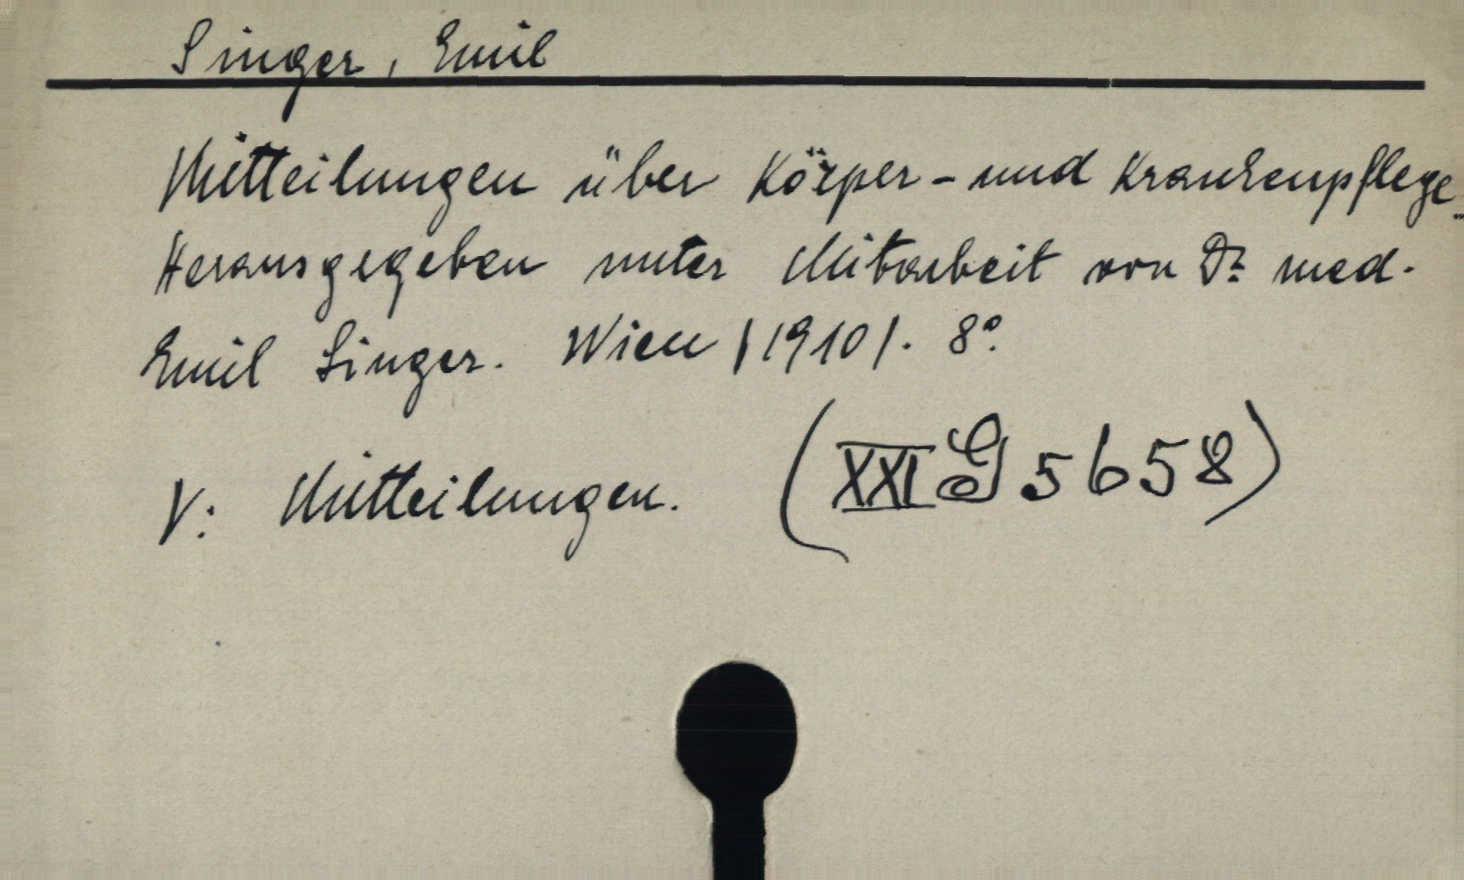 Singer, Emil
Mitteilungen über Körper- und Krankenpflege...
Herausgegeben unter Mitarbeit von Dr. med.
Emil Singer. Wien /1910/. 8°.
V: Mitteilungen. (XXI G 5658)